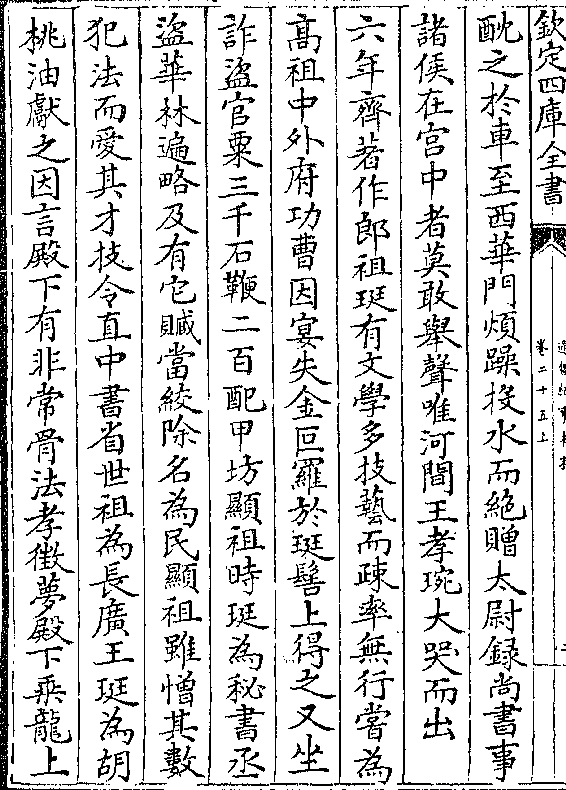 欽定四庫全書
酖之於車至西華門煩躁投水而絶贈太尉録尚書事
諸侯在宫中者莫敢舉聲唯河間王孝琬大哭而出
六年齊著作郎祖珽有文學多技藝而疎率無行嘗為
髙祖中外府功曹因宴失金叵羅於珽髻上得之又坐
詐盜官粟三千石鞭二百配甲坊顯祖時珽為秘書丞
盜華林遍略及有它贓當絞除名為民顯祖雖憎其數
犯法而愛其才技令直中書省世祖為長廣王珽為胡
桃油獻之因言殿下有非常骨法孝徵夢殿下乘龍上
卷二十五上